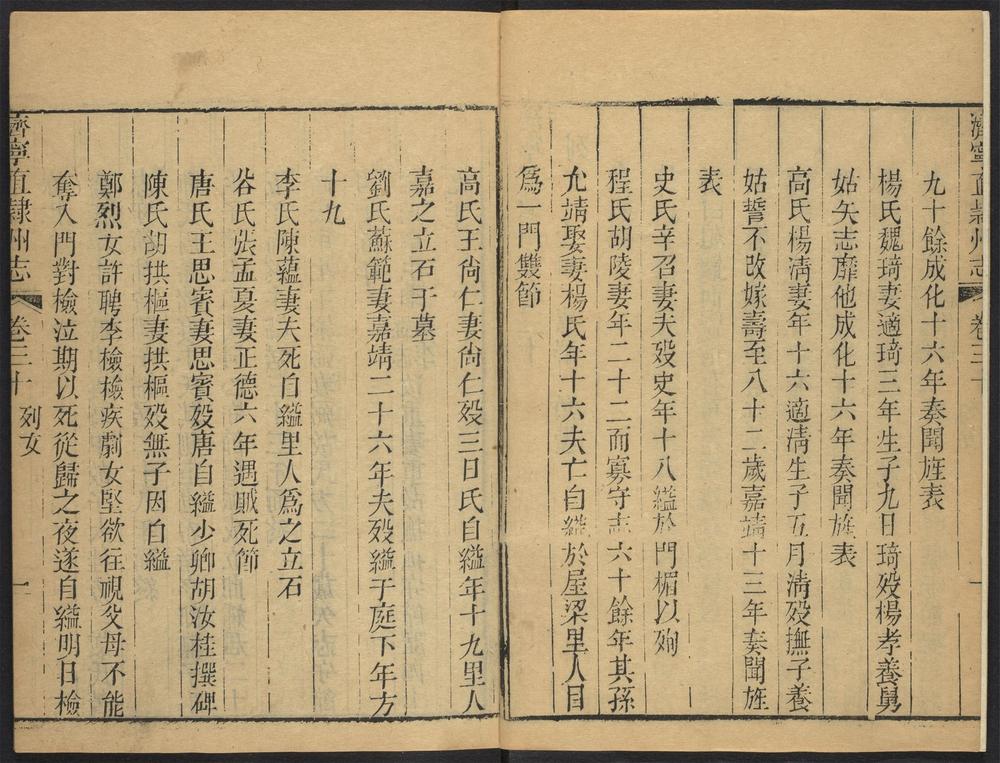 濟寧直隸州志 卷三十 一
九十餘成化十六年奏聞旌表
楊氏魏琦妻適琦三年生子九日琦歿楊孝養舅
姑矢志靡他成化十六年奏聞旌表
高氏楊淸妻年十六適淸生子五月淸歿撫子養
姑誓不改嫁壽至八十二歲嘉靖十三年奏聞旌
表
史氏辛召妻夫歿史年十八縊於門楣以殉
程氏胡陵妻年二十二而寡守志六十餘年其孫
允靖娶妻楊氏年十六夫亡自縊於屋梁里人目
爲一門雙節
高氏王尙仁妻尙仁歿三日氏自縊年十九里人
嘉之立石于墓
劉氏蘇範妻嘉靖二十六年夫歿縊于庭下年方
十九
李氏陳蘊妻夫死自縊里人爲之立石
谷氏張孟夏妻正德六年遇賊死節
唐氏王思賓妻思賓歿唐自縊少卿胡汝桂撰碑
陳氏胡拱樞妻拱樞歿無子因自縊
鄭烈女許聘李檢檢疾劇女堅欲往視父母不能
奪入門對檢泣期以死從歸之夜遂自縊明日檢
濟寧直隸州志 卷三十 列女 一